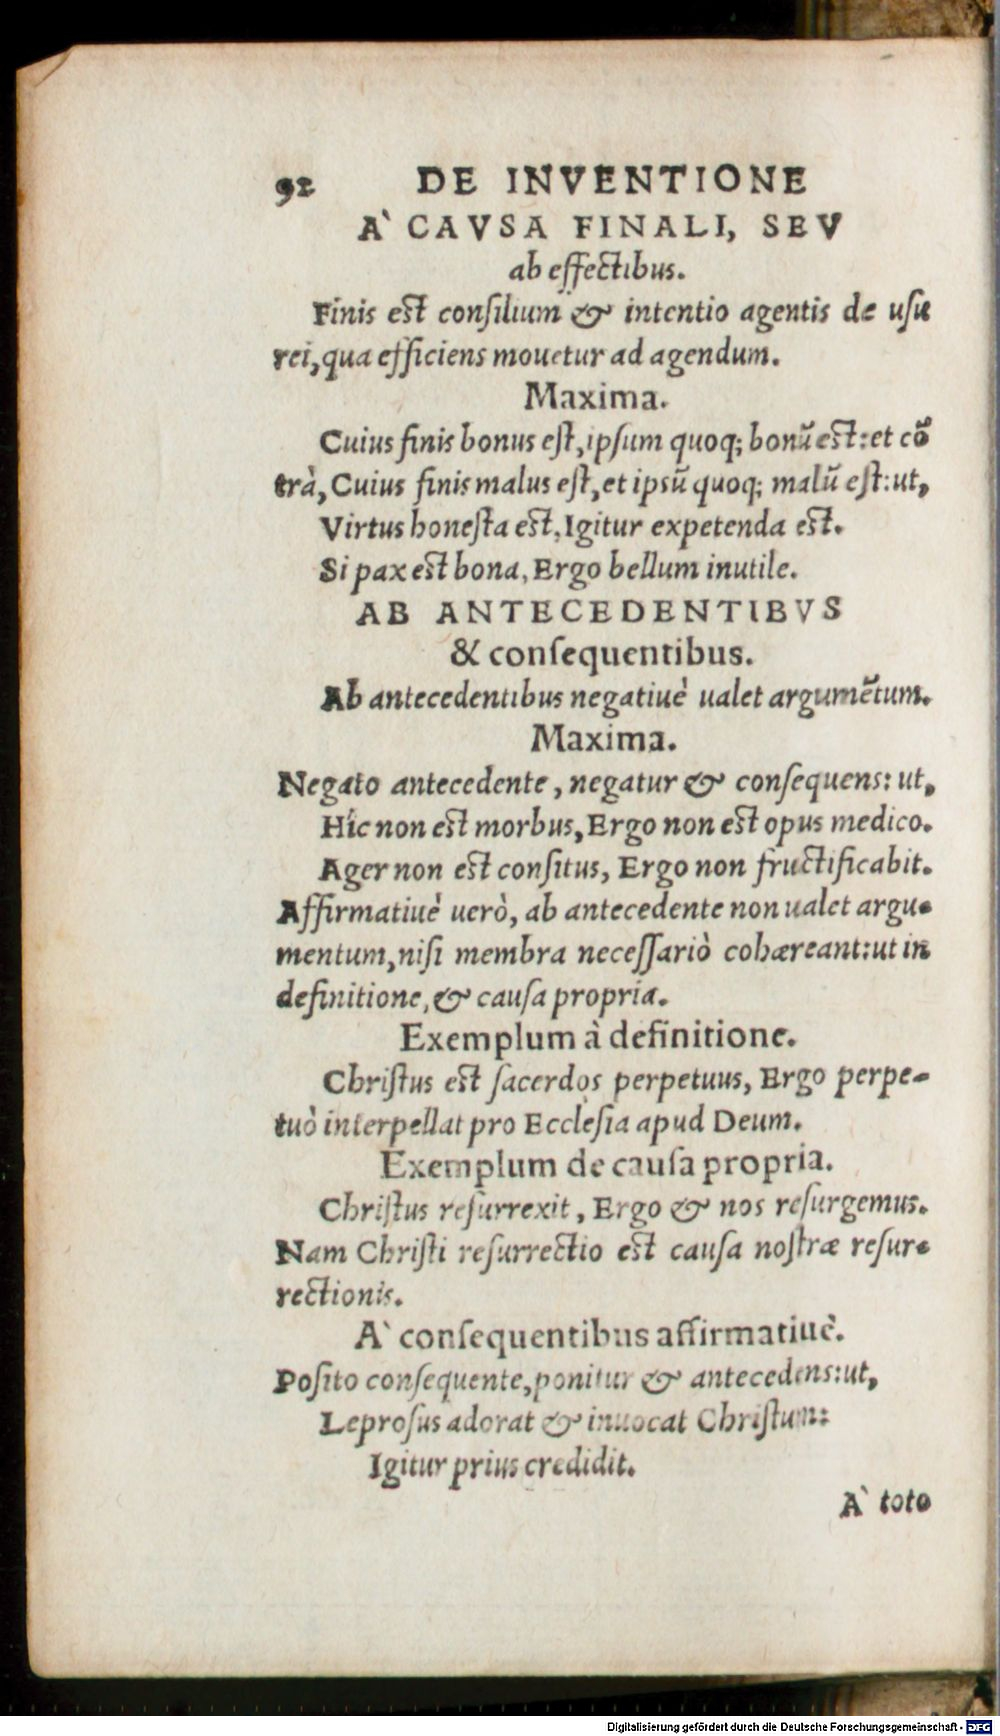 92 DE INVENTIONE
A` CAVSA FINALI, SEV
ab effectibus.
Finis est consilium & intentio agentis de usu
rei, qua efficiens mouetur ad agendum.
Maxima.
Cuius finis bonus est, ipsum quoq; bonū est: et cō
trà, Cuius finis malus est, et ipsū quoq; malū est: ut,
Virtus honesta est, Igitur expetenda est.
Si pax est bona, Ergo bellum inutile.
AB ANTECEDENTIBVS
& consequentibus.
Ab antecedentibus negatiuè ualet argumētum.
Maxima.
Negato antecedente, negatur & consequens: ut,
Hîc non est morbus, Ergo non est opus medico.
Ager non est consitus, Ergo non fructificabit.
Affirmatiuè uerò, ab antecedente non ualet argu-
mentum, nisi membra necessariò cohæreant: ut in
definitione, & causa propria.
Exemplum à definitione.
Christus est sacerdos perpetuus, Ergo perpe-
tuò interpellat pro Ecclesia apud Deum.
Exemplum de causa propria.
Christus resurrexit, Ergo & nos resurgemus.
Nam Christi resurrectio est causa nostræ resur-
rectionis.
A` consequentibus affirmatiuè.
Posito consequente, ponitur & antecedens: ut,
Leprosus adorat & inuocat Christum:
Igitur prius credidit.
A` toto
Digitalisierung gefördert durch die Deutsche Forschungsgemeinschaft - DFG